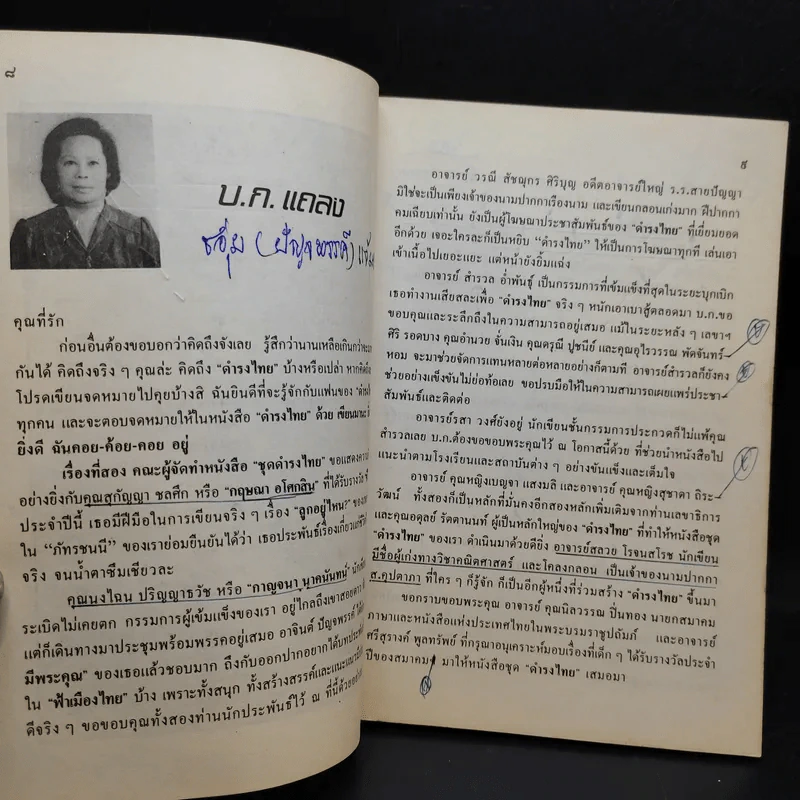 ๘
บ.ก. แถลง
คุณที่รัก
ก่อนอื่นต้องขอบอกว่าคิดถึงจังเลย รู้สึกว่านานเหลือเกินกว่าจะ
กันได้ คิดถึงจริง ๆ คุณล่ะ คิดถึง "ดำรงไทย" บ้างหรือเปล่า หากคิดถึง
โปรดเขียนจดหมายไปคุยบ้างสิ ฉันยินดีที่จะรู้จักกับแฟนของ
ทุกคน และจะตอบจดหมายให้ในหนังสือ "ดำรงไทย" ด้วย เขียนมานะ
ยิ่งดี ฉันคอย-ค้อย-คอย อยู่
เรื่องที่สอง คณะผู้จัดทำหนังสือ "ชุดดำรงไทย" ขอแสดง
อย่างยิ่งกับคุณสุกัญญา ชลศึก หรือ "กฤษณา อโศกสิน" ที่ได้รับรางวัล
ประจำปีนี้ เธอมีฝีมือในการเขียนจริง ๆ เรื่อง "ลูกอยู่ไหน?"
ใน "ภัทรชนนี" ของเราย่อมยืนยันได้ว่า เธอประพันธ์เรื่องเกี่ยว
จริง จนน้ำตาซึมเชียวละ
คุณนงไฉน ปริญญาธวัช หรือ "กาญจนา นาคนันทน์"
ระเบิดไม่เคยตก กรรมการผู้เข้มแข็งของเรา อยู่ไกลถึงเขาสอยดาว
แต่ก็เดินทางมาประชุมพร้อมพรรคอยู่เสมอ อาจินต์ ปัญจพรรค์
มีพระคุณ" ของเธอแล้วชอบมาก ถึงกับออกปากอยากได้บท
ใน "ฟ้าเมืองไทย" บ้าง เพราะทั้งสนุก ทั้งสร้างสรรค์และแนะแนว
ดีจริง ๆ ขอขอบคุณทั้งสองท่านนักประพันธ์ไว้ ณ ที่นี้ด้วย
๙
อาจารย์ วรณี สัชฌุกร ศิริบุญ อดีตอาจารย์ใหญ่ ร.ร.สายปัญญา
มิใช่จะเป็นเพียงเจ้าของนามปากกาเรืองนาม และเขียนกลอนเก่งมาก ฝีปากกา
คมเฉียบเท่านั้น ยังเป็นผู้โฆษณาประชาสัมพันธ์ของ "ดำรงไทย" ที่เยี่ยมยอด
อีกด้วย เจอะใครละก็เป็นหยิบ "ดำรงไทย" ให้เป็นการโฆษณาทุกที เล่นเอา
เข้าเนื้อไปเยอะแยะ แต่หน้ายังยิ้มแฉ่ง
อาจารย์ สำรวล อ่ำพันธุ์ เป็นกรรมการที่เข้มแข็งที่สุดในระยะบุกเบิก
เธอทำงานเสียสละเพื่อ "ดำรงไทย" จริง ๆ หนักเอาเบาสู้ตลอดมา บ.ก.ขอ
ขอบคุณและระลึกถึงในความสามารถอยู่เสมอ แม้ในระยะหลัง ๆ เลขาฯ
ศิริ รอดบาง คุณอำนวย จั่นเงิน คุณดรุณี ปูชนีย์ และคุณอุไรวรรณ พัดจันทร์-
หอม จะมาช่วยจัดการแทนหลายต่อหลายอย่างก็ตามที อาจารย์สำรวลก็ยังคง
ช่วยอย่างแข็งขันไม่ย่อท้อเลย ขอปรบมือให้ในความสามารถเผยแพร่ประชา-
สัมพันธ์และติดต่อ
อาจารย์รสา วงศ์ยังอยู่ นักเขียนชั้นกรรมการประกวดก็ไม่แพ้คุณ
สำรวลเลย บ.ก.ต้องขอขอบพระคุณไว้ ณ โอกาสนี้ด้วย ที่ช่วยนำหนังสือไป
แนะนำตามโรงเรียนและสถาบันต่าง ๆ อย่างขันแข็งและเต็มใจ
อาจารย์ คุณหญิงเบญจา แสงมลิ และอาจารย์ คุณหญิงสุชาดา ถิระ-
วัฒน์ ทั้งสองก็เป็นหลักที่มั่นคงอีกสองหลักเพิ่มเติมจากท่านเลขาธิการ
และคุณอดุลย์ รัตตานนท์ ผู้เป็นหลักใหญ่ของ "ดำรงไทย" ที่ทำให้หนังสือชุด
"ดำรงไทย" ของเรา ดำเนินมาด้วยดียิ่ง อาจารย์สลวย โรจนสโรช นักเขียน
มีชื่อผู้เก่งทางวิชาคณิตศาสตร์ และโคลงกลอน เป็นเจ้าของนามปากกา
ส.คุปตาภา ที่ใคร ๆ ก็รู้จัก ก็เป็นอีกผู้หนึ่งที่ร่วมสร้าง "ดำรงไทย" ขึ้นมา
ขอกราบขอบพระคุณ อาจารย์ คุณนิลวรรณ ปิ่นทอง นายกสมาคม
ภาษาและหนังสือแห่งประเทศไทยในพระบรมราชูปถัมภ์ และอาจารย์
ศรีสุรางค์ พูลทรัพย์ ที่กรุณาอนุเคราะห์มอบเรื่องที่เด็ก ๆ ได้รับรางวัลประจำ
ปีของสมาคมฯ มาให้หนังสือชุด "ดำรงไทย" เสมอมา